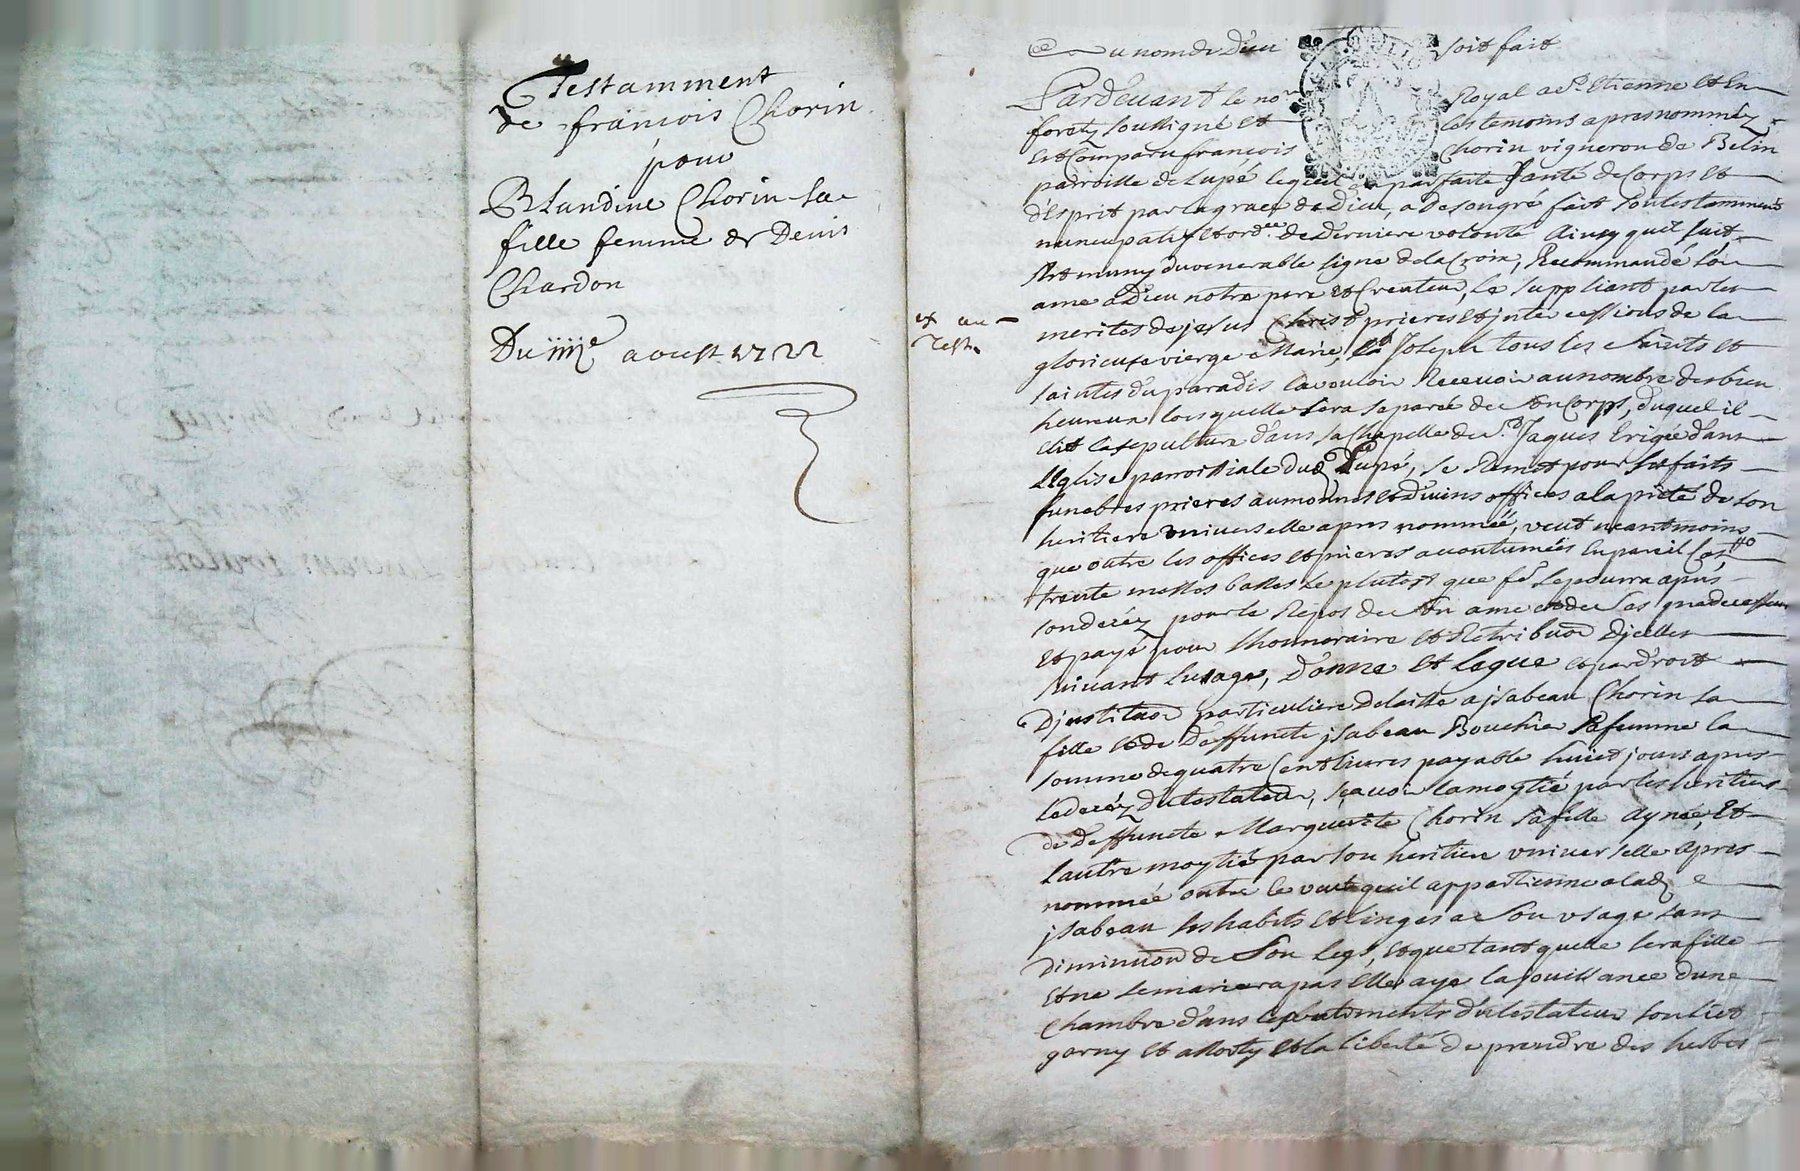 Testamment
de francois Chorin
pour
Blandine Chorin sa
fille femme de Denis
Chardon
Du iiije aoust 1722
Au nom de Dieu soit fait
Pardevant le nore Royal a St Etienne et en
foretz soussigné et les temoins apres nommez
est Comparu francois Chorin vigneron de Belin
parroisse de Lupé lequel en parfaite santé de Corps et
d'Esprit par la grace de Dieu, a de son gré fait son testamment
nuncupatif et ordce de derniere volonté Ainsy quil suit
S'est muny du venerable signe de la Croix, Recommande son
ame a Dieu notre pere et Createur, le suppliant par les
merites de jesus Christ prieres et intercessions de la
glorieuse vierge Marie, St Joseph tous les saints et
saintes du paradis la vouloir Recevoir au nombre des bien
heureux lors quelle sera separée de son Corps, duquel il
elit la sepulture dans la Chapelle de St Jaques Erigée dans
L'Eglise parroissiale dud Lupé, se Remet pour ses faits
funebres prieres aumones et divins offices a la pieté de son
heritiere universelle apres nommée, veut neantmoins
que outre les offices et prieres accoutumées En pareil Cas
trente messes basses le plutost que fe se pourra apres
son decéz pour le Repos de son ame et de ses predecesseurs
et payé pour l'honnoraire et Retribuon d'jcelles
suivant l'usage, Donne et Legue et par droit
D'jnstituon particuliere delaisse a jsabeau Chorin sa
fille et de deffuncte jsabeau Bouchie sa femme la
somme de quatre Cent livres payable huict jours apres
le decéz du testateur, sçavoir la moytié par les heritiers
de deffuncte Marguerite Chorin sa fille aynée, Et
l'autre moytié par son heritiere universelle apres
nommée outre ce veut quil appartienne a lad
jsabeau ses habits et linges a son usage sans
diminuon de son legs, et que tant quelle sera fille
et ne se mariera pas elle aye la jouissance dune
chambre dans les batiments du testateur son lict
garny et assorty et la liberté de prendre des herbes